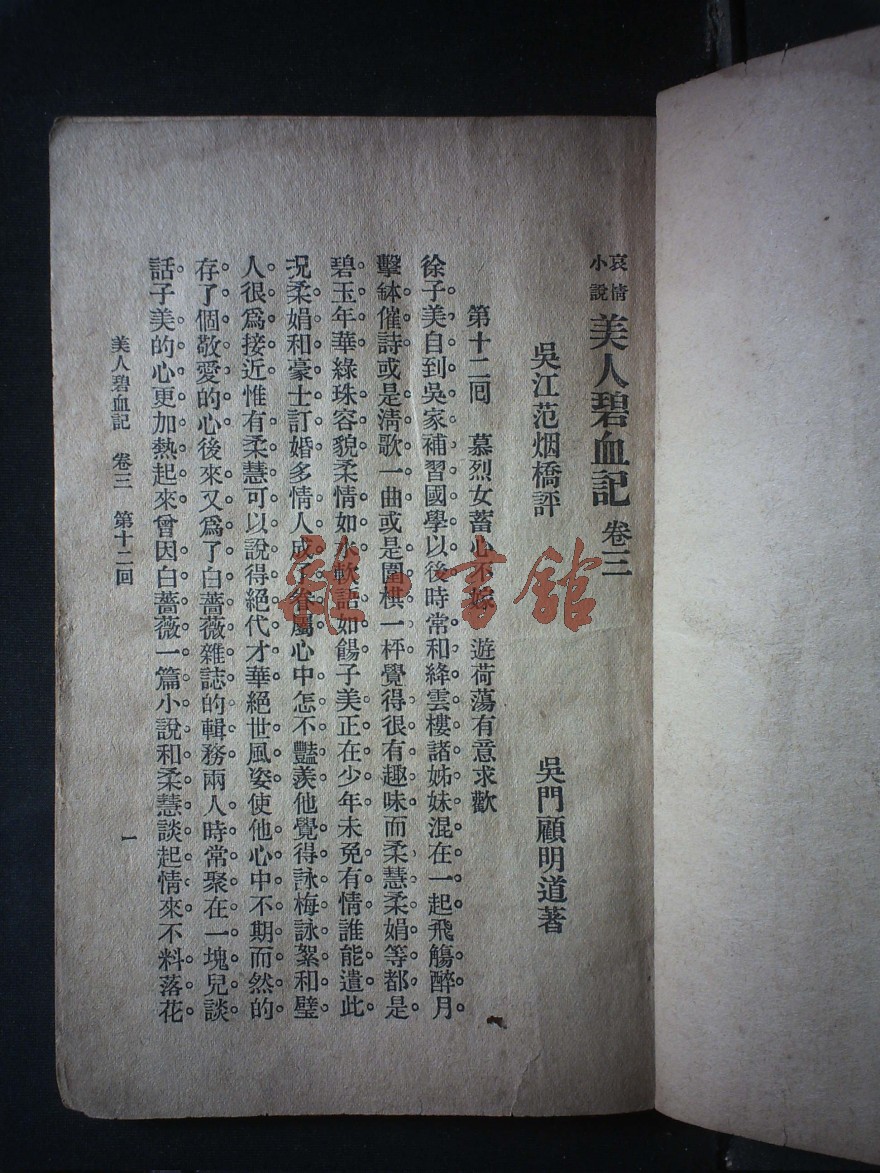 哀情小說 美人碧血記 卷三
吳門顧明道著
吳江范烟橋評
第十二囘 慕烈女蓄心不嫁 遊荷蕩有意求歡
徐子美自到吳家補習國學以後時常和絳雲樓諸姊妹混在一起飛觴醉月
擊缽催詩或是淸歌一曲或是圍棋一枰覺得很有趣味而柔慧柔娟等都是
碧玉年華綠珠容貌柔情如水軟話如餳子美正在少年未免有情誰能遣此
况柔娟和豪士訂婚多情人成了眷屬心中怎不豔羨他覺得詠梅詠絮和璧
人很爲接近惟有柔慧可以說得絕代才華絕世風姿使他心中不期而然的
存了個敬愛的心後來又爲了白薔薇雜誌的輯務兩人時常聚在一塊兒談
話子美的心更加熱起來曾因白薔薇一篇小說和柔慧談起情來不料落花
美人碧血記 卷三 第十二囘
一
雜·書館